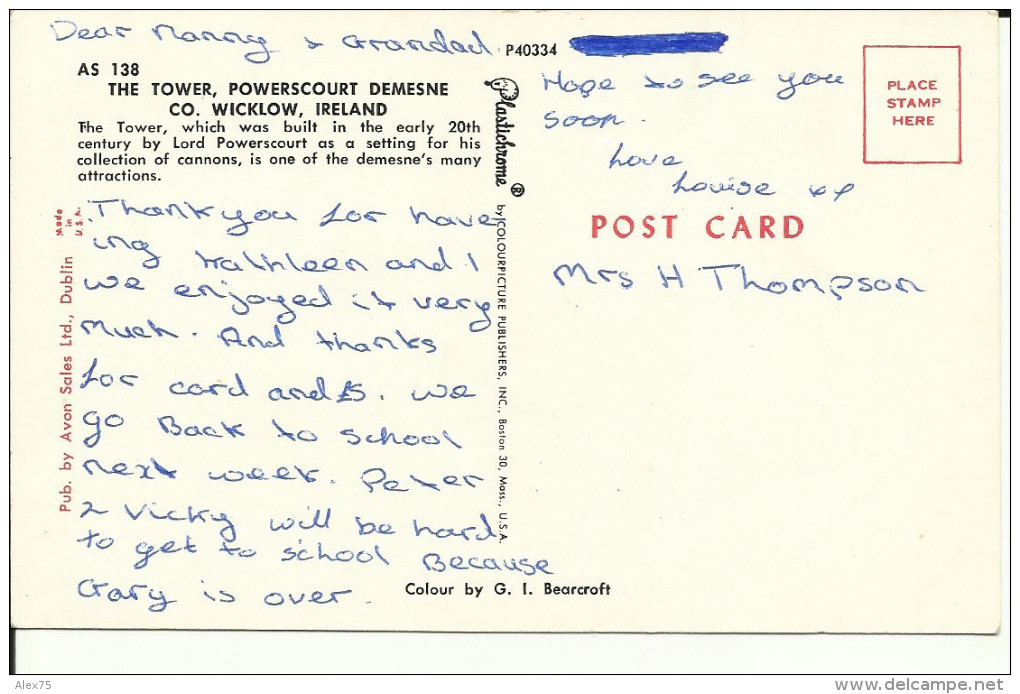 Dear Nanny & Grandad.
P40334
AS 138
THE TOWER, POWERSCOURT DEMESNE
CO. WICKLOW, IRELAND
The Tower, which was built in the early 20th
century by Lord Powerscourt as a setting for his
collection of cannons, is one of the demesne's many
attractions.
Made
in
U.S.A.
Pub. by Avon Sales Ltd., Dublin
Thank you for have
ing Kathleen and I
we enjoyed it very
much. And thanks
for card and £5. we
go Back to school
next week. Peter
& Vicky will be hard
to get to school Because
Gary is over.
Plastichrome ®
by COLOURPICTURE PUBLISHERS, INC., Boston 30, Mass., U.S.A.
Colour by G. I. Bearcroft
Hope to see you
soon.
Love
Louise xx
PLACE
STAMP
HERE
POST CARD
Mrs H Thompson
Alex75
www.delcampe.net